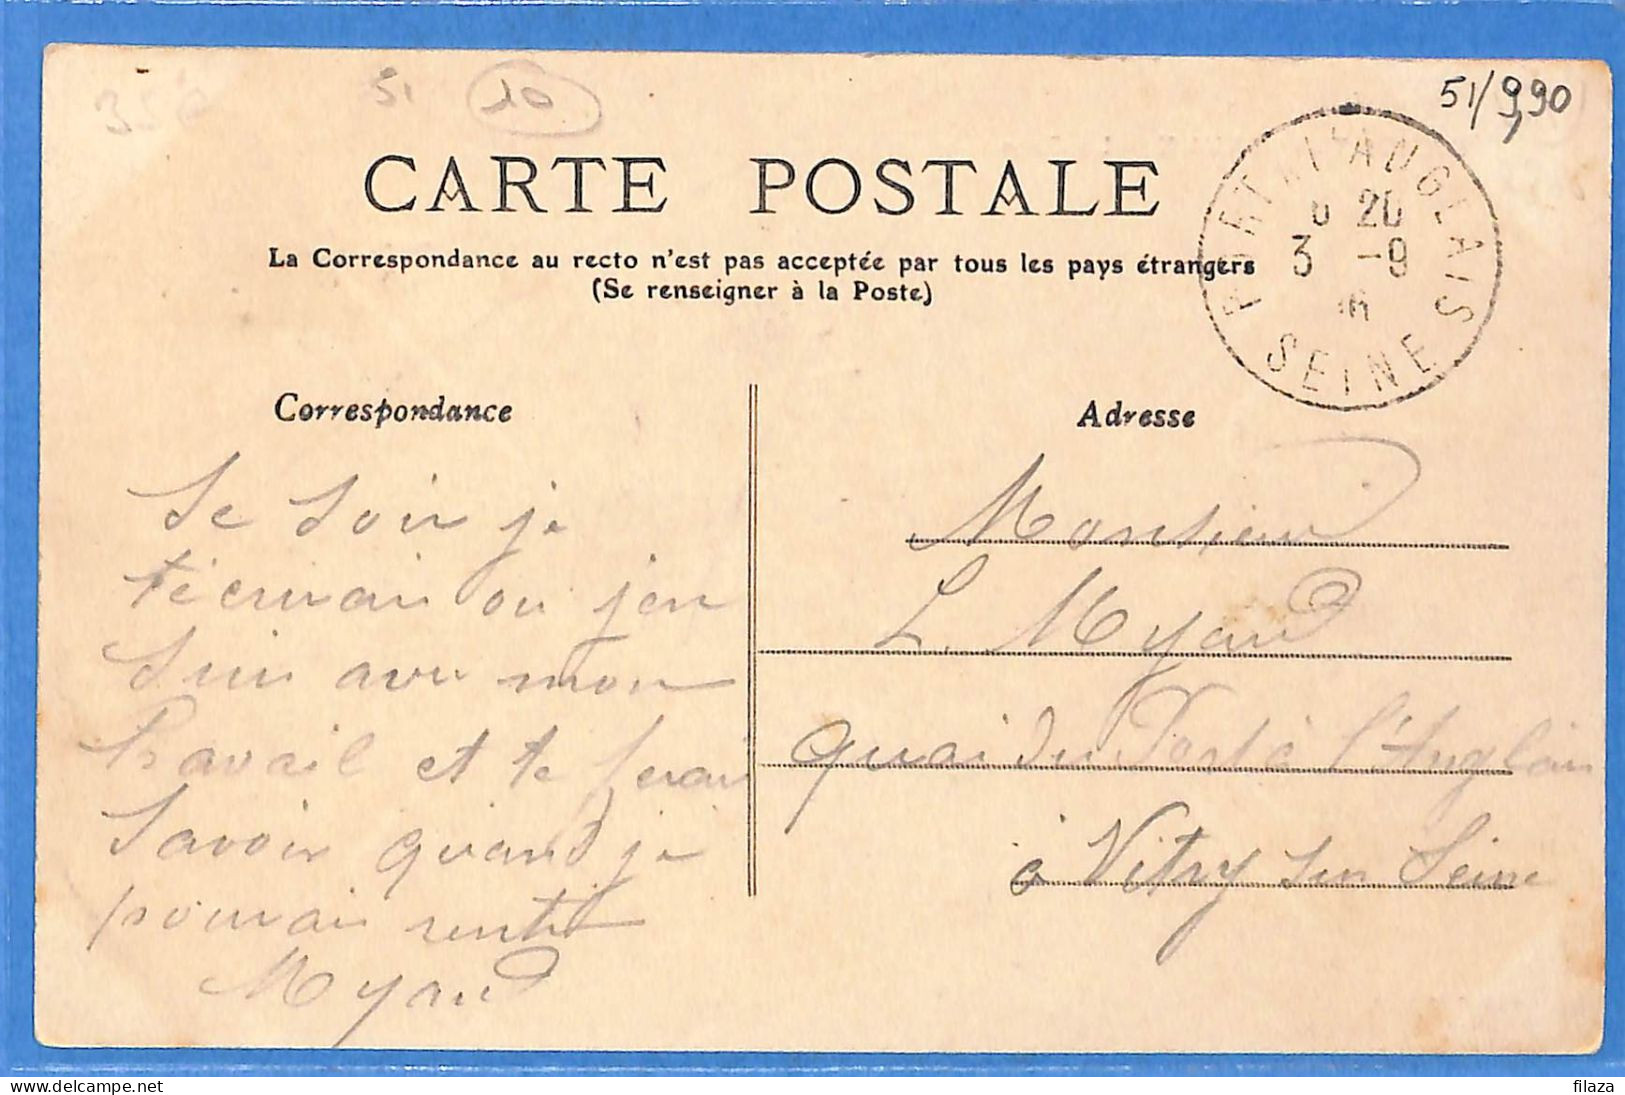 51
10
51/9,90
CARTE POSTALE
La Correspondance au recto n'est pas acceptée par tous les pays étrangers
(Se renseigner à la Poste)
PORT-A-L'ANGLAIS
20
3 -9
SEINE
Correspondance
Se Soir je
t'écrirai ou j'en
Suis avec mon
travail et te ferai
Savoir quand je
pourrai rentrer
Myard
Adresse
Monsieur
L. Myard
quai du Port à l'Anglais
à Vitry sur Seine
filaza